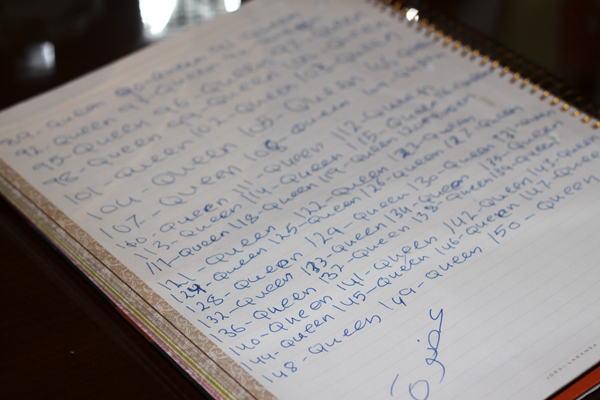 89-Queen 90-Queen 91-Queen
92-Queen 93-Queen
95-Queen 96-Queen 97-Queen
98-Queen 99-Queen 100-Queen
101-Queen 102-Queen 103-Queen
104-Queen 105-Queen 106-Queen
107-Queen 108-Queen 109-Queen
110-Queen 111-Queen 112-Queen
113-Queen 114-Queen 115-Queen 116-Queen
117-Queen 118-Queen 119-Queen 120-Queen
121-Queen 122-Queen 123-Queen
124-Queen 125-Queen 126-Queen 127-Queen
128-Queen 129-Queen 130-Queen 131-Queen
132-Queen 133-Queen 134-Queen 135-Queen
136-Queen 137-Queen 138-Queen 139-Queen
140-Queen 141-Queen 142-Queen 143-Queen
144-Queen 145-Queen 146-Queen 147-Queen
148-Queen 149-Queen 150-Queen